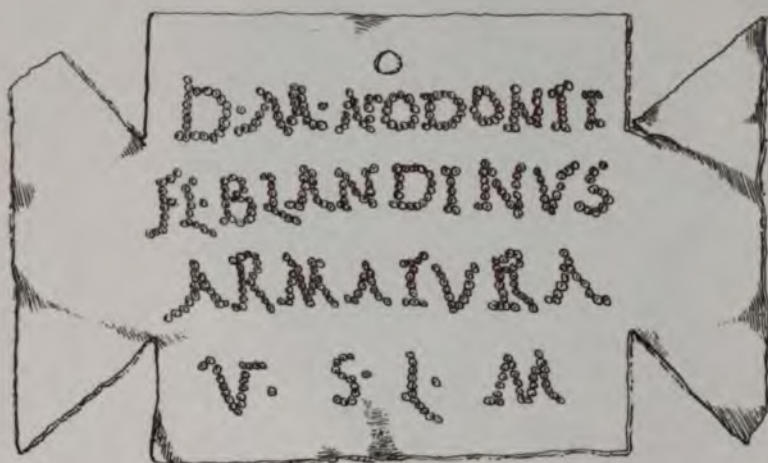 D·M·NODONTI
FL·BLANDINVS
ARMATVRA
V· S· L· M